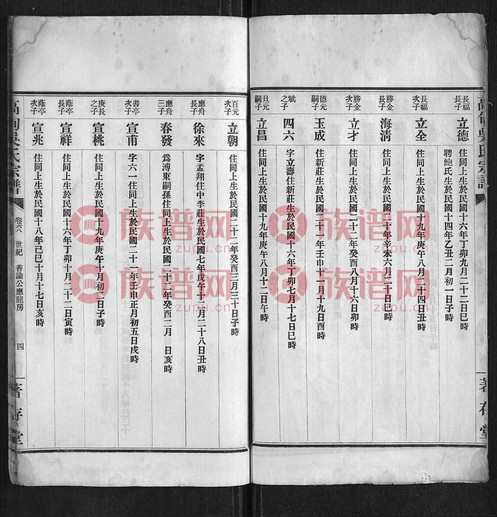 高甸吳氏宗譜
長福長子
立德 住同上生於民國十六年丁卯九月二十二日巳時
聘鮑氏生於民國十四年乙丑二月初一日子時
長福次子
立全 住同上生於民國十九年庚午八月二十四日丑時
勝金長子
海清 住同上生於民國二十年辛未六月二十日辰時
勝金次子
立才 住同上生於民國二十二年癸酉八月十六日卯時
德元嗣子
玉成 住新莊生於民國二十一年壬申八月十九日酉時
斌之子
四六 字立壽住新莊生於民國十六年丁卯五月十三日午時
旦元嗣子
立昌 住同上生於民國十九年庚午八月十二日午時
著存堂
百元次子
立朝 住同上生於民國二十二年癸酉三月三十日子時
應舟長子
徐來 字孟翔住中李莊生於民國七年戊午十二月二十八日丑時
應舟三子
春發 爲溥東嗣孫住同上生於民國二十二年癸酉二月 日亥時
書亭次子
宣甫 字六一住同上生於民國二十一年壬申正月初五日戌時
庚長之子
宣桃 住同上生於民國十九年庚午十月初二日子時
蔭亭長子
宣祥 住同上生於民國十六年丁卯十月二十二日寅時
蔭亭次子
宣兆 住同上生於民國十八年己巳十月十七日亥時
高甸吳氏宗譜
卷六 世紀 善論公應龍房
四
著存堂
族譜网
zupu.cn
族譜网
zupu.cn
族譜网
zupu.cn
族譜网
zupu.cn